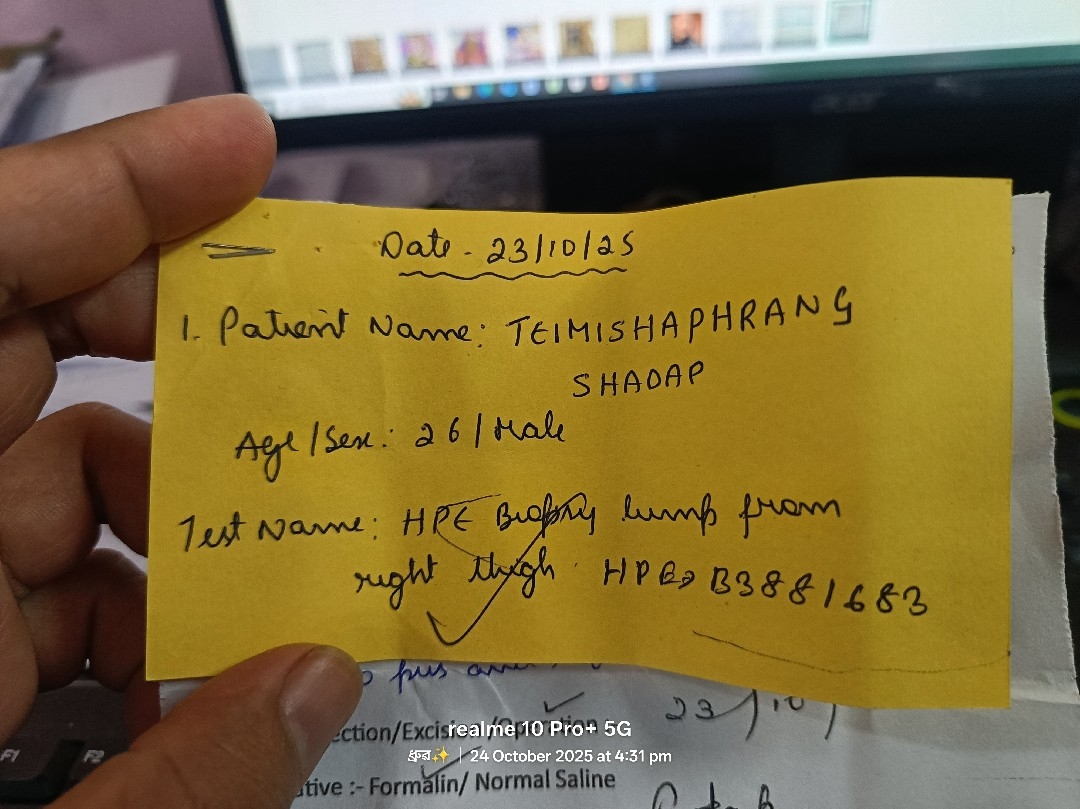 Date - 23/10/25
1. Patient Name: TEIMISHAPHRANG
SHADAP
Age/Sex: 26/Male
Test Name: HPE Biopsy lump from
right thigh. HPE B3881683
pus
23/10/
ction/Excision/Operation
realme 10 Pro+ 5G
ধ্রুব✨ | 24 October 2025 at 4:31 pm
ative :- Formalin/ Normal Saline
F1 F2